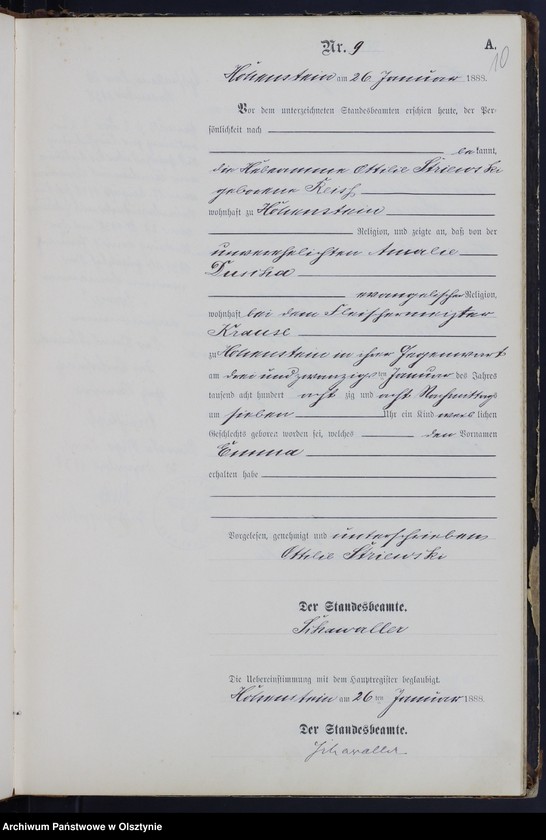 Nr. 9
A.
10
Hohenstein am 26 Januar 1888.
Vor dem unterzeichneten Standesbeamten erschien heute, der Per-
sönlichkeit nach
bekannt,
die Hebeamme Ottilie Striewski
geborene
wohnhaft zu Hohenstein
Religion, und zeigte an, daß von der
unverehelichten Amalie
evangelischer Religion,
wohnhaft bei dem Fleischermeister
Krause
zu Hohenstein in ihrer Gegenwart
am drei und zwanzigsten Januar des Jahres
tausend acht hundert achtzig und acht Nachmittags
um sieben Uhr ein Kind weiblichen
Geschlechts geboren worden sei, welches den Vornamen
Emma
erhalten habe
Vorgelesen, genehmigt und unterschrieben
Ottilie Striewski
Der Standesbeamte.
Schawaller
Die Uebereinstimmung mit dem Hauptregister beglaubigt.
Hohenstein am 26ten Januar 1888.
Der Standesbeamte.
Schawaller
Archiwum Państwowe w Olsztynie